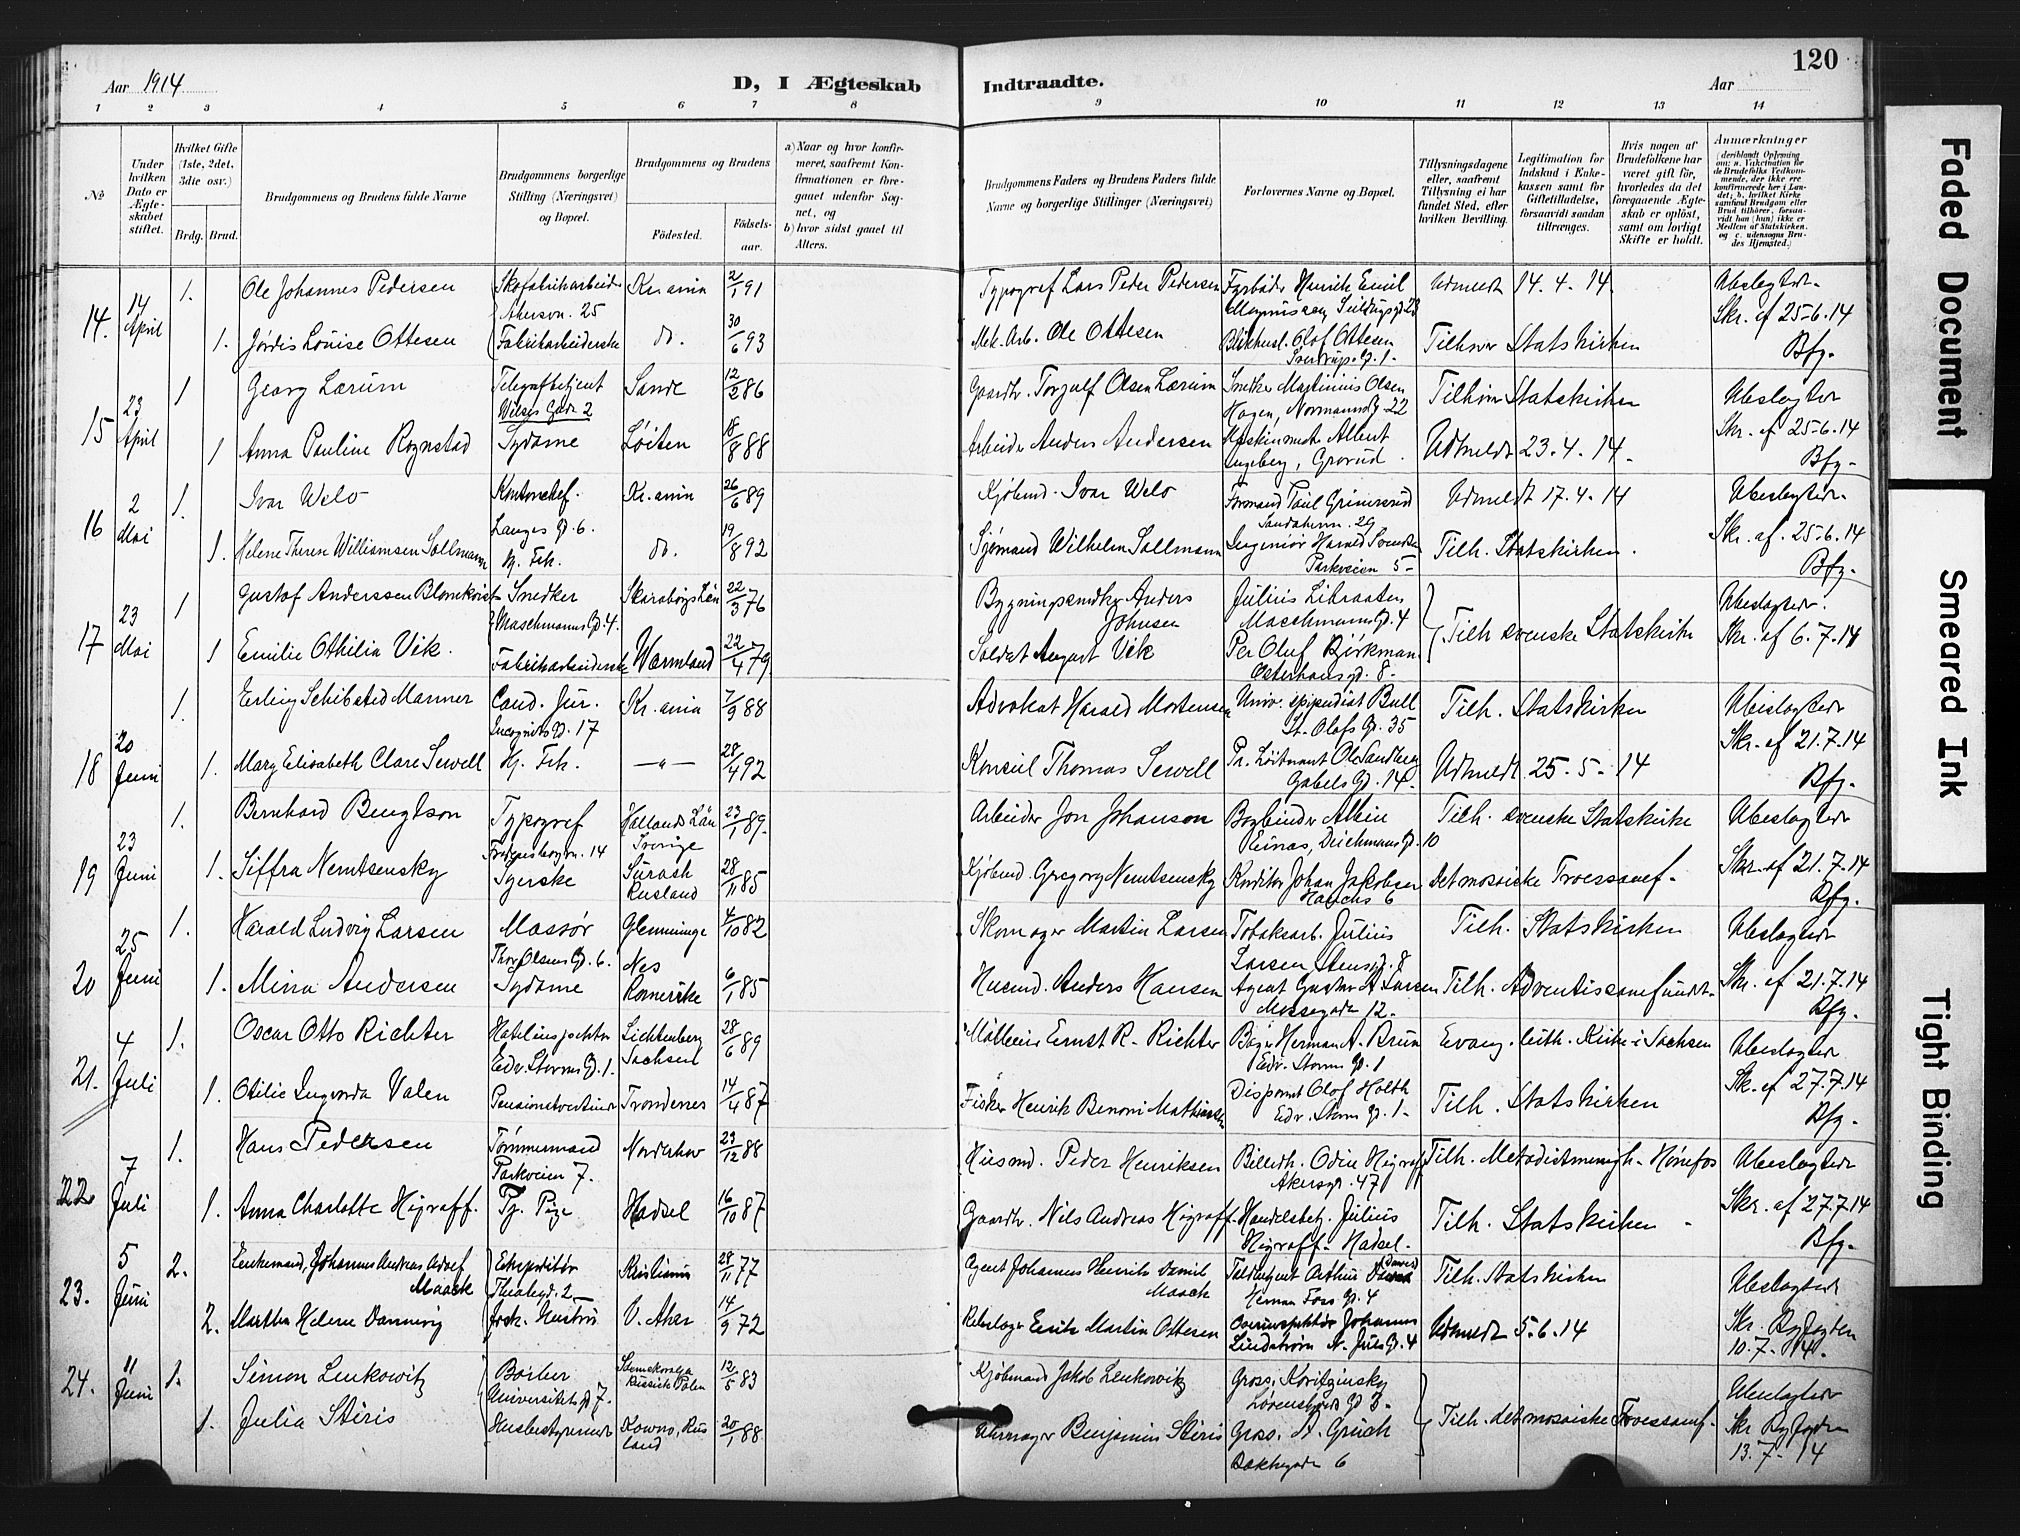 120
Aar 1914
D, I Ægteskab Indtraadte.
Aar
1 2 3 4 5 6 7 8 9 10 11 12 13 14
No
Under hvilken Dato er Ægteskabet stiftet.
Hvilket Gifte (1ste, 2det, 3die osv.)
Brdg. Brud.
Brudgommens og Brudens fulde Navne
Brudgommens borgerlige Stilling (Næringsvei) og Bopæl.
Brudgommens og Brudens
Fødested.
Fødselsaar.
a) Naar og hvor konfirmeret, saafremt Konfirmationen er foregaaet udenfor Sognet, og
b) hvor sidst gaaet til Alters.
Brudgommens Faders og Brudens Faders fulde Navne og borgerlige Stillinger (Næringsvei)
Forlovernes Navne og Bopæl.
Tillysningsdagene eller, saafremt Tillysning ei har fundet Sted, efter hvilken Bevilling.
Legitimation for Indskud i Enkekassen samt for Giftetilladelse, forsaavidt saadan tiltrænges.
Hvis nogen af Brudefolkene har været gift før, hvorledes da det foregaaende Ægteskab er opløst, samt om lovligt Skifte er holdt.
Anmærkninger
(deriblandt Oplysning om: a. Vakcination for de Brudefolks Vedkommende, der ikke ere konfirmerede her i Landet; b. hvilket Kirkesamfund Brudgom eller Brud tilhører, forsaavidt han (hun) ikke er Medlem af Statskirken, og c. udensogns Brudes Hjemsted.)
14. 14 April 1. Ole Johannes Pedersen Skofabrikarbeider Kr.ania 2/1 91 Typograf Lars Peder Pedersen Farbøder Henrik Emil Udmeldt 14.4.14 Ubeslægtede.
Akersvn. 25 Magnussen Skr. af 25-6.14
1. Jørdis Louise Ottesen Fabrikarbeiderske do. 30/6 93 Mek. Arb. Ole Ottesen Blikksl. Olof Ottesen Tilhører Statskirken Bfg.
Sverdrups g. 1
15 23 April 1 Georg Lærum Telegrafbetjent Sande 12/2 86 Gaardbr. Torgalf Olsen Lærum Snedker Martinius Olsen Tilhører Statskirken Ubeslægtede
Wilses Gade 2 Hagen, Normannsg 22 Skr. af 25-6.14
1 Anna Pauline Rognstad Sydame Løiten 18/8 88 Arbeider Anders Andersen Maskinmester Albert Udmeldt 23.4.14. Bfg.
Engeberg, Grorud.
16 2 Mai 1. Ivar Welo Kontorchef. Kr.ania 26/6 89 Kjøbmd. Ivar Welo Formand Paul Grimsrud Udmeldt 17.4.14 Ubeslægtede.
Langes G. 6. 29 Skr. af. 25-6.14
1. Helene Therese Williamsen Sollmann Hj. Frk. do. 19/8 92 Sjømand Wilhelm Sollmann Ingeniør Harald Tilh. Statskirken. Bfg.
Parkveien 5
17 23 Mai 1 Gustof Anderssen Blomkvist Snedker Skaraborgs Län 22/3 76 Bygningssnedker Anders Johnsen Julius Libraaten Tilh svenske Statskirke Ubeslægtede.
Maschmanns G. 4. Maschmanns G. 4 Skr. af 6.7.14
1 Emilie Othilia Vik. Fabrikarbeiderske Wärmland 22/4 79 Soldat August Vik Per Oluf Björkman
Osterhausgd. 8.
18 20 Juni 1. Erling Schibsted Manner Cand. Jur. Kr.ania 7/9 88 Advokat Harald Mortensen Univ. stipendiat Bull Tilh. Statskirken Ubeslægtede
Incognito G. 17 St. Olafs G. 35 Skr. af 21.7.14
1. Mary Elisabeth Clare Sewell Hj. Frk. —„— 28/4 92 Konsul Thomas Sewell Pr. Løitnant Ole Sandberg Udmeldt 25-5-14 Bfg.
Gabels G. 14.
19 23 Juni 1. Bernhard Bengtson Typograf Hallands Län 23/1 89. Arbeider Jon Johanson Bogbinder Albin Tilh. svenske Statskirke Ubeslægtede
Fredensborgvn. 14 Sverige Reinås, Deichmans G. 10 Skr. af 21.7.14
1. Siffra Nemtsensky Syerske Surash Rusland 28/11 85 Kjøbmd Gregory Nemtsensky Konditor Johan Jakobsen Det mosaiske Troessamf. Bfg.
Hauchs 6
20 25 Juni 1. Harald Ludvig Larsen Massør Glemminge 4/10 82 Skomager Martin Larsen Tobaksarb. Julius Tilh. Statskirken Ubeslægtede
Thor Olsens G. 6. Larsen, Stensgd. 8 Skr. af 21.7.14
1. Mina Andersen Sydame Nes Romerike 6/1 85 Husmd. Anders Hansen Agent Gustav A Larsen Tilh. Adventissamfundet. Bfg.
Mossegade 12.
21. 4 Juli 1. Oscar Otto Richter Lichtenberg Sachsen 28/6 89 Møller Ernst R. Richter Bager Herman A. Brun Evang. luth. Kirke i Sachsen Ubeslægtede
Edv. Storms G. 1. Edv. Storms G. 1 Skr. af 27.7.14
1. Otilie Ingvarda Valen Pensionatvertinde Trondenes 14/4 87 Fisker Henrik Benoni Mathiesen Disponent Olof Holth Tilh. Statskirken Bfg.
Edv. Storms G. 1-
22 7 Juli 1. Hans Pedersen Tømmermand Norderhov 23/12 88 Husmd. Peder Henriksen Billedh. Odin Higraff Tilh. Metodistmenigh. Hønefos Ubeslægtede
Parkveien 7. Akersgd. 47 Skr. af 27.7.14
1. Anna Charlotte Higraff. Tj. Pige Hadsel 16/10 87 Gaardbr. Nils Andreas Higraff. Handelsbetj. Julius Tilh. Statskirken Bfg.
Higraff. Hadsel.
23. 5 Juni 2. Enkemand, Johannes Andreas Adolf Maack Ekspeditør Kristiania 28/11 77 Agent Johannes Henrik Daniel Maack Arthur Tilh. Statskirken Ubeslægtede
Herman Foss G. 4 Skr. Byfogden
2. Marthea Helene Dannevig frsk. Hustru V. Aker 14/9 72 Rebslager Erik Martin Ottesen Overinspektør Johannes Udmeldt 5-6.14 10.7.14.
Lindstrøm N. Juels G. 4
24. 11 Juni 1. Simon Lenkowitz Barber Russisk Polen 12/5 83 Kjøbmand Jakob Lenkowitz Gross. Koritzinsky Tilh. det mosaiske Troessamf. Ubeslægtede
Universitets g. 7. Løvenskiolds G 3. Skr Byfogden
1. Julia Stiris Husbestyrerinde Kowno, Rusland 20/1 88. Uhrmager Benjamin Stiris Gross. A. Grüch 13.7.14
Bakkegaden 6
Faded Document
Smeared Ink
Tight Binding